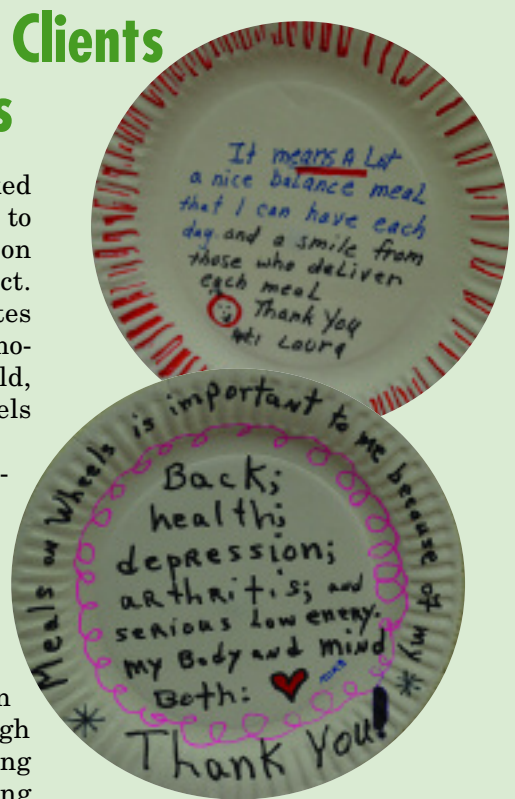 Clients
s
ed
to
on
ct.
tes
mo-
ld,
els
-
n
gh
ng
ng
It means A Lot
a nice balance meal
that I can have each
day and a smile from
those who deliver
each meal
Thank You
Laura
Meals on Wheels is important to me because of my
Back;
health;
depression;
arthritis; and
serious low enery.
my Body and mind
Both:
Thank You!